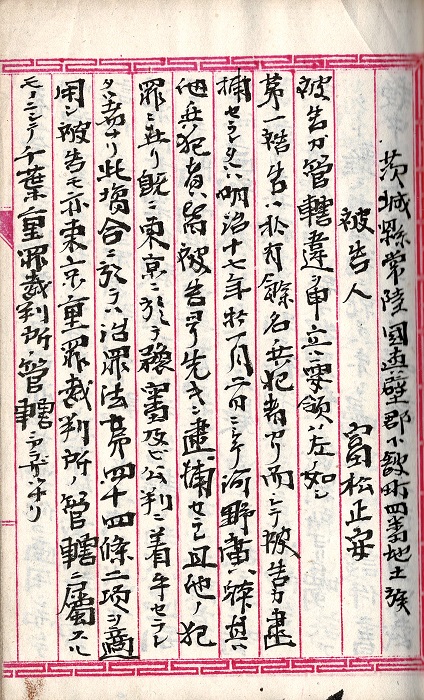 茨城縣常陸國真壁郡下館町四番地士族
被告人 富松正安
被告カ管轄違ヲ申立ル要領ハ左ノ如シ
第一被告ハ於有餘名共犯者アリ而シテ被告カ逮
捕セラレタルハ明治十七年十一月二日ニシテ河野廣躰其ノ
他共犯者ハ皆被告ヨリ先キニ逮捕セラレ且他ノ犯
罪ニ在リ既ニ東京ニ於テ豫審及ビ公判ニ着手セラレ
タル者ナリ此場合ニ於テハ治罪法第四十四條二項ヲ適
用シ被告モ亦東京重罪裁判所ノ管轄ニ屬スル
モノニシテ千葉重罪裁判所ノ管轄ニアラザルナリ